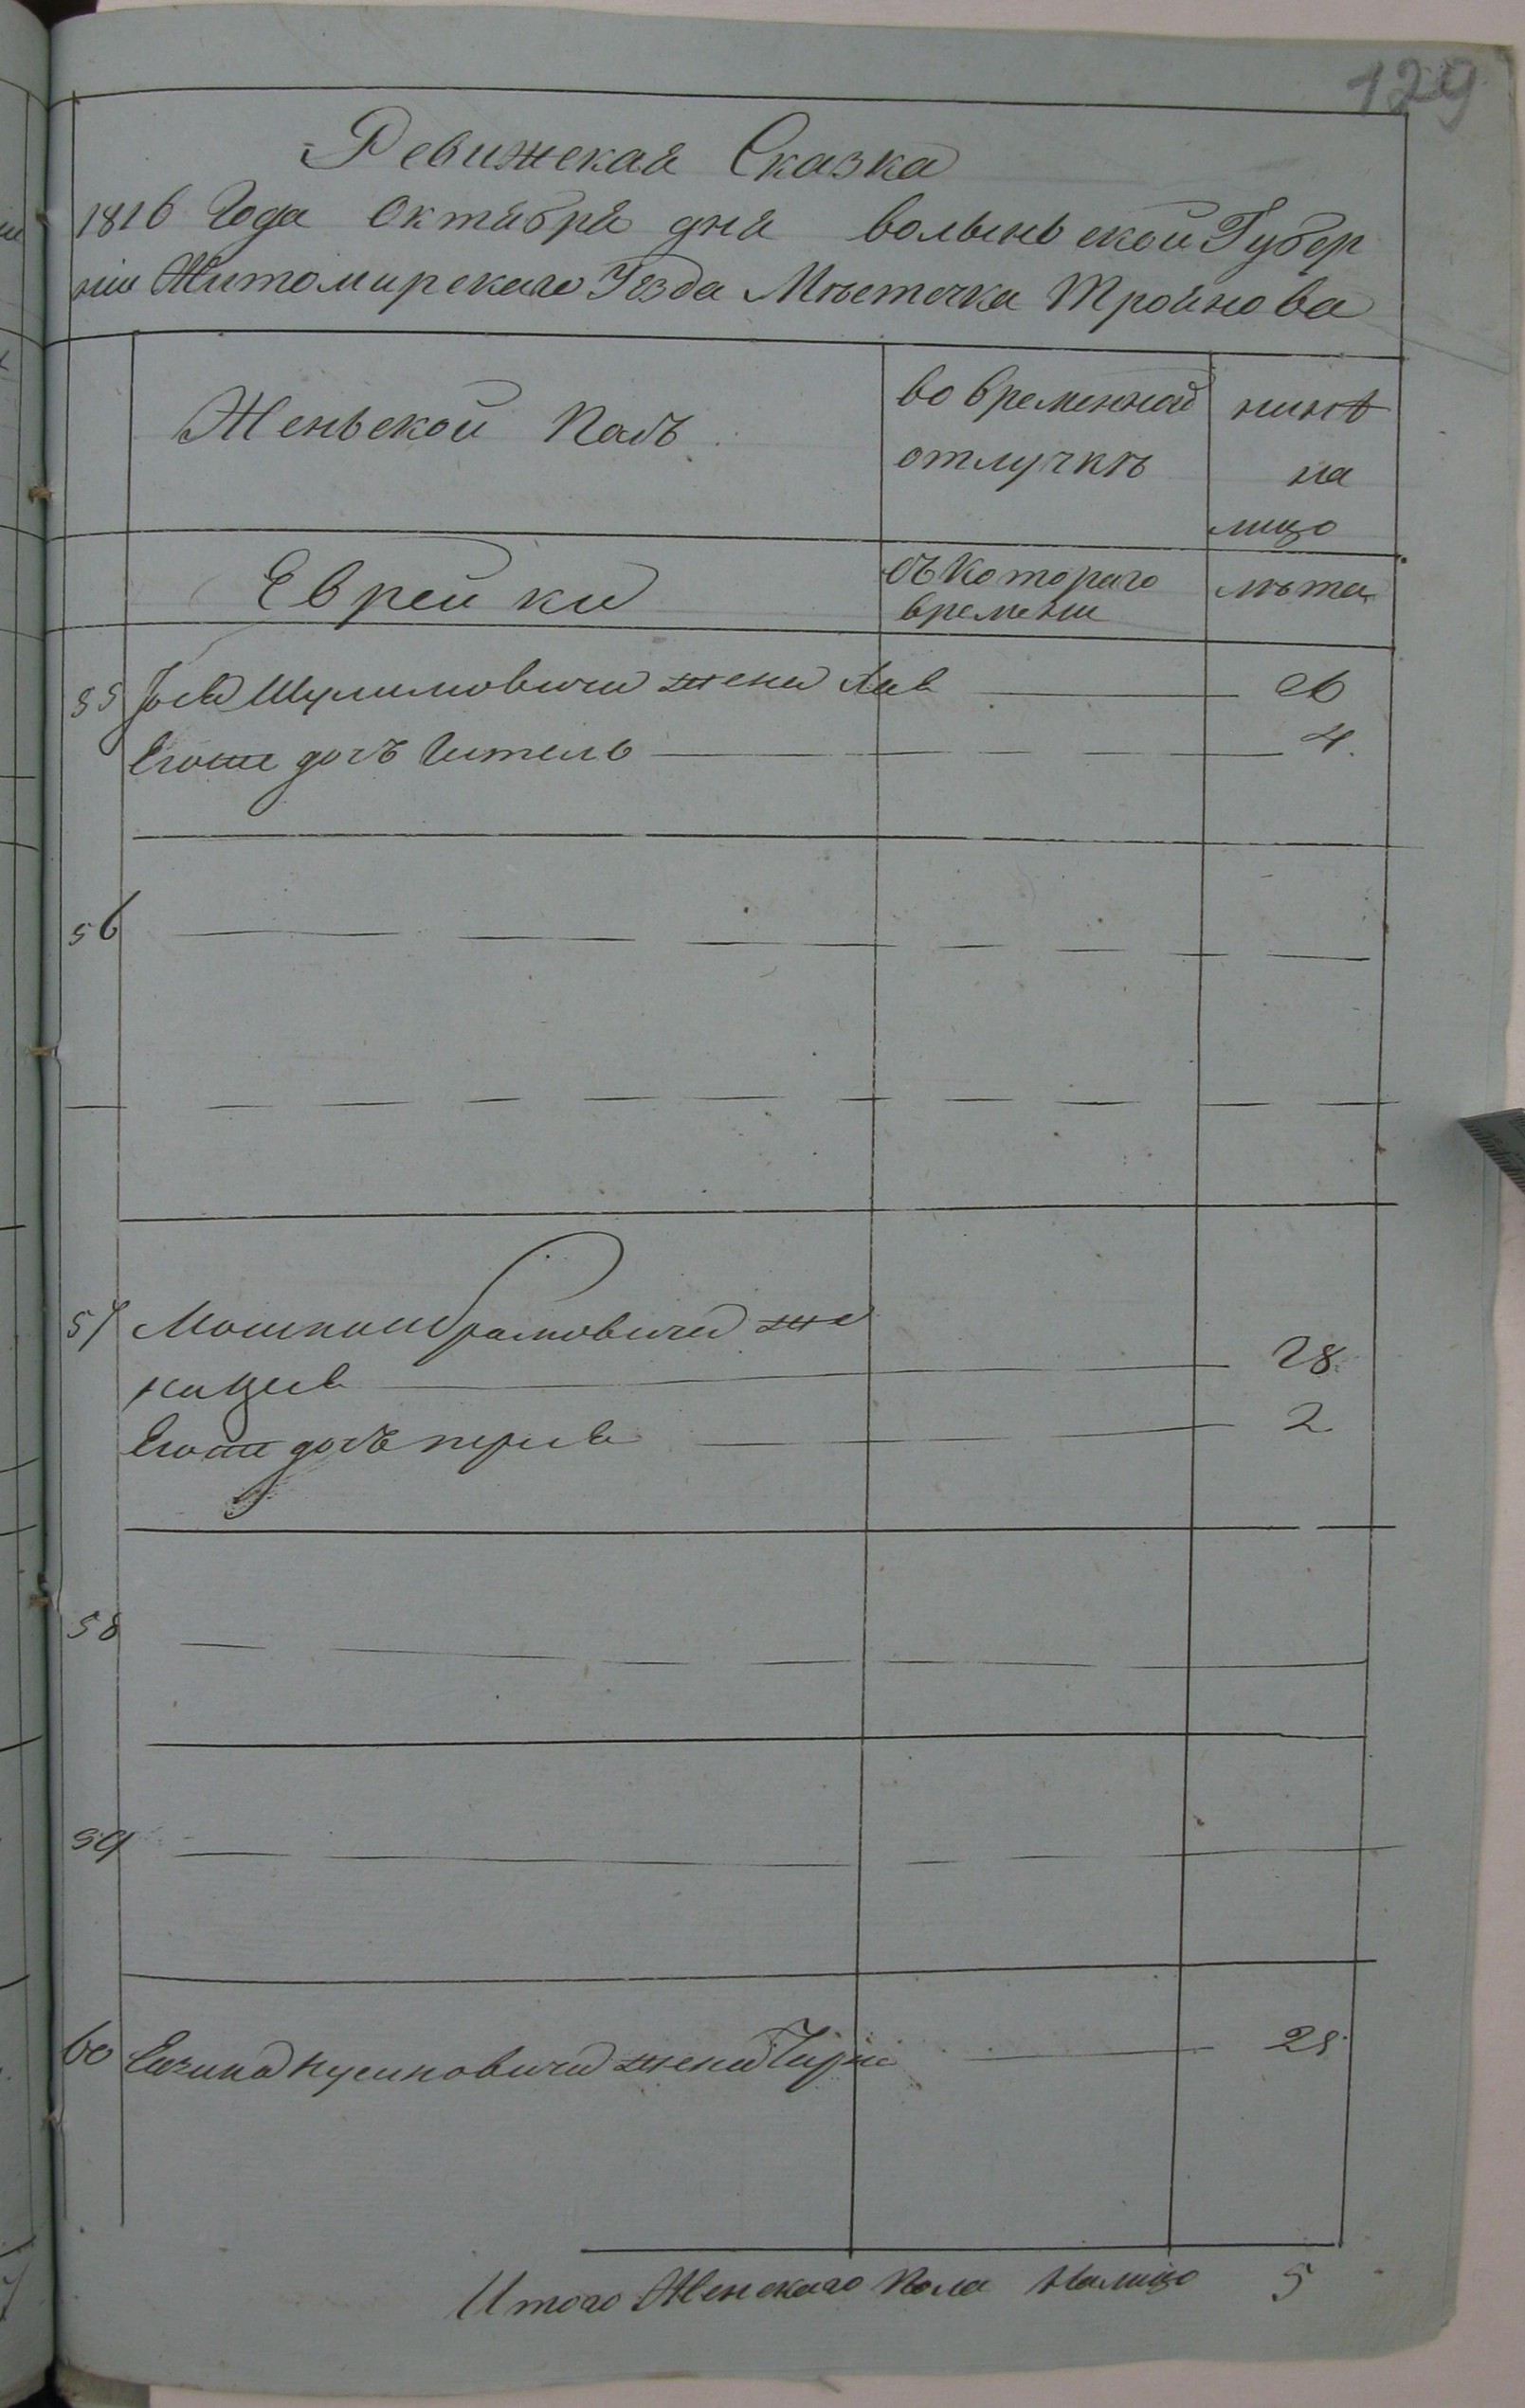 129
Ревижская Сказка
1816 Года Октября дня волынь ской Губер
ніи Житомирскаго Уезда Мѣстечка Троянова
Женьской Полъ
во временной
отлучкѣ
нинѣ
на
лицо
Еврейки
съ Котораго
времени
лѣта
55 Шулимовича жена Хая 26
Егоже дочь Гитель 4.
56
57 Мошка Абрамовича же
на 28
Егоже дочь перля 2
58
59
60 жена 25
Итого Женскаго Пола Налицо 5